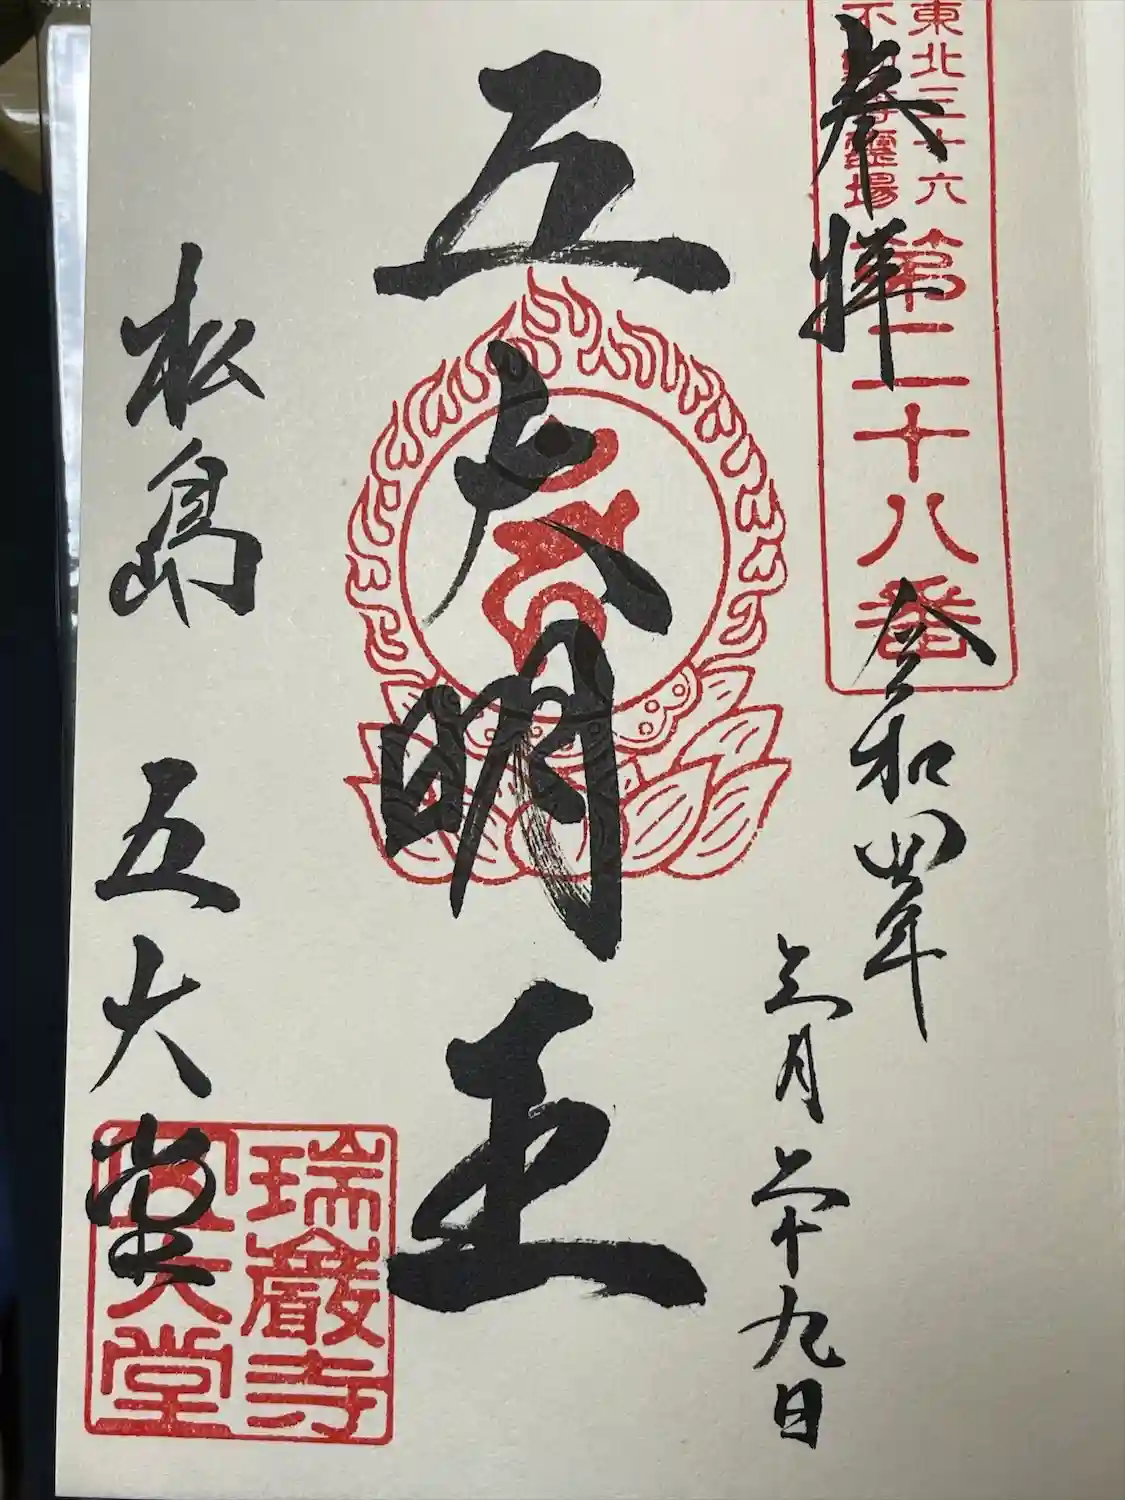 東北三十六
不動尊霊場
第二十八番
奉拝
令和四年
三月二十九日
五大明王
松島 五大堂
瑞巌寺
五大堂